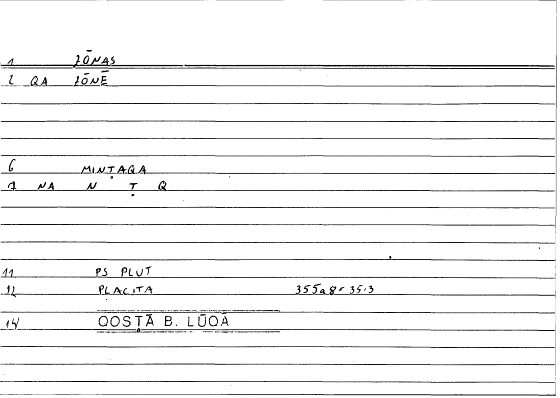 1 ZŌNAS
2 QA ZŌNĒ
6 MINṬAQA
7 NA N Ṭ Q
11 PS PLUT
12 PLACITA 355a8-35.3
14 QOSṬĀ B. LŪQĀ